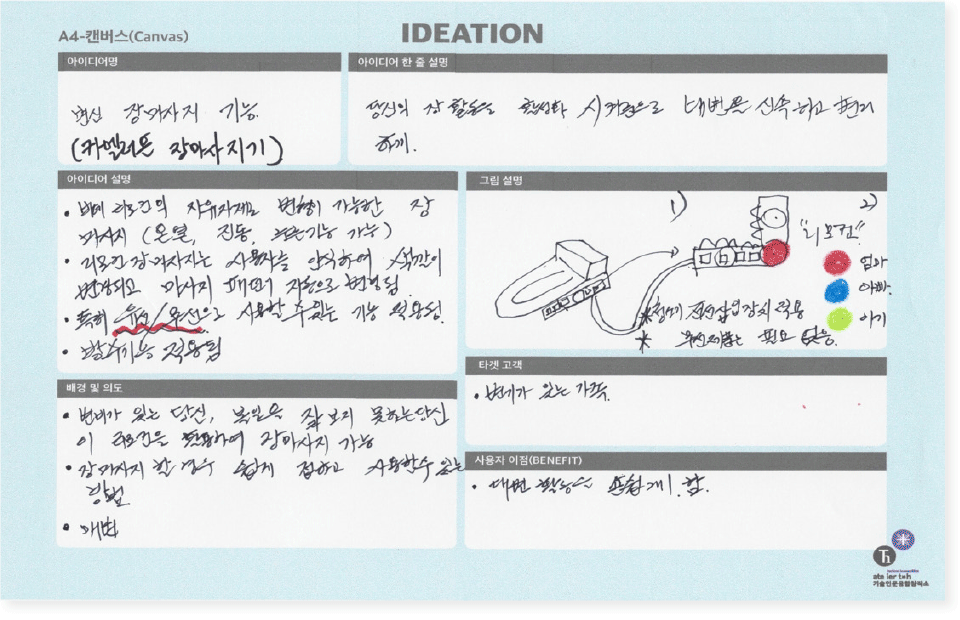 A4-캔버스(Canvas)
IDEATION
아이디어명
변신 장마사지 기능.
(카멜레온 장마사지기)
아이디어 한 줄 설명
당신의 장 활동을 활성화 시켜줌으로 대변을 신속하고 편리
하게.
아이디어 설명
• 비데 리모컨의 자유자재로 변형이 가능한 장
마사지 (온열, 진동, 기능 가능)
• 리모컨 장마사지는 사용자를 인식하여 색깔이
변경되고 마사지 패턴이 자동으로 변경됨
• 특히 유선/무선으로 사용할 수 있는 기능 적용성.
• 발광기능 적용됨
그림 설명
1)
2)
"리모컨"
엄마
아빠.
아기
* 청결 적용
* 무선제품는 필요 없음.
배경 및 의도
• 변비가 있는 당신, 볼일을 잘 보지 못하는 당신
이 리모컨을 하여 장마사지 가능
• 장마사지 할 경우 쉽게 접하고 사용할수 있는
방법
• 쾌변
타겟 고객
• 변비가 있는 가족.
사용자 이점(BENEFIT)
• 대변 활동을 쉽게 함.
Th
atelier t×h
기술인문융합창작소